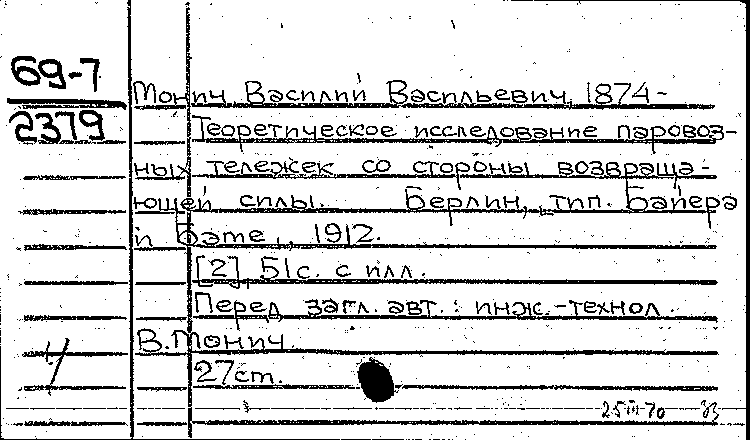 69-7
2379
Монич, Василий Васильевич, 1874-
Теоретическое исследование паровоз-
ных тележек со стороны возвраща-
ющей силы. Берлин, тип. Байера
и Бате, 1912.
[2], 51 с. с илл.
Перед загл. авт.: инж.-технол.
В. Монич.
27 см.
25 III 70